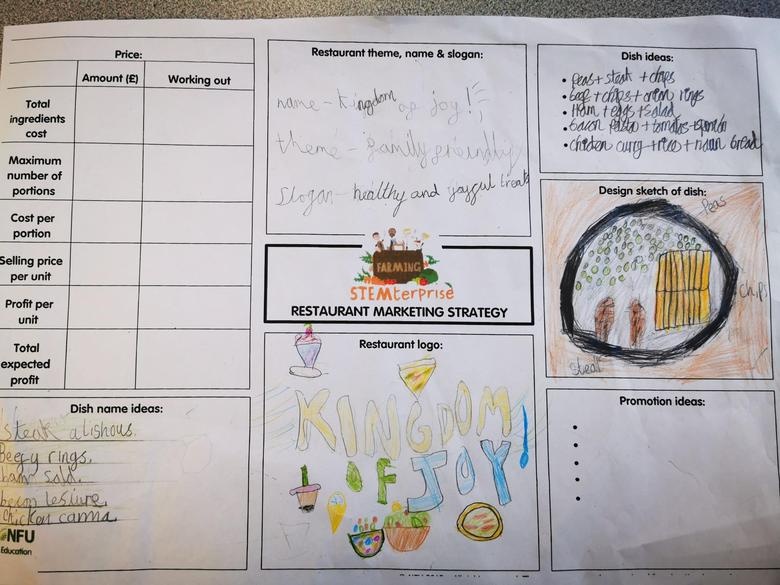 Price:
Amount (£)
Working out
Total
ingredients
cost
Maximum
number of
portions
Cost per
portion
Selling price
per unit
Profit per
unit
Total
expected
profit
Dish name ideas:
steak alishous.
Beefy rings.
ham salad.
chicken
NFU
Education
Restaurant theme, name & slogan:
name - Kingdom of joy!
theme - family friendly
Slogan - healthy and joyful treats
FARMING
STEMterprise
RESTAURANT MARKETING STRATEGY
Restaurant logo:
KINGDOM
OF JOY!
Dish ideas:
• peas + steak + chips
• beef + chips + onion rings
• Ham + eggs + salad
• bacon pasta + tomatos
• chicken curry + rice + naan bread
Design sketch of dish:
Peas
Chips
Steak
Promotion ideas: